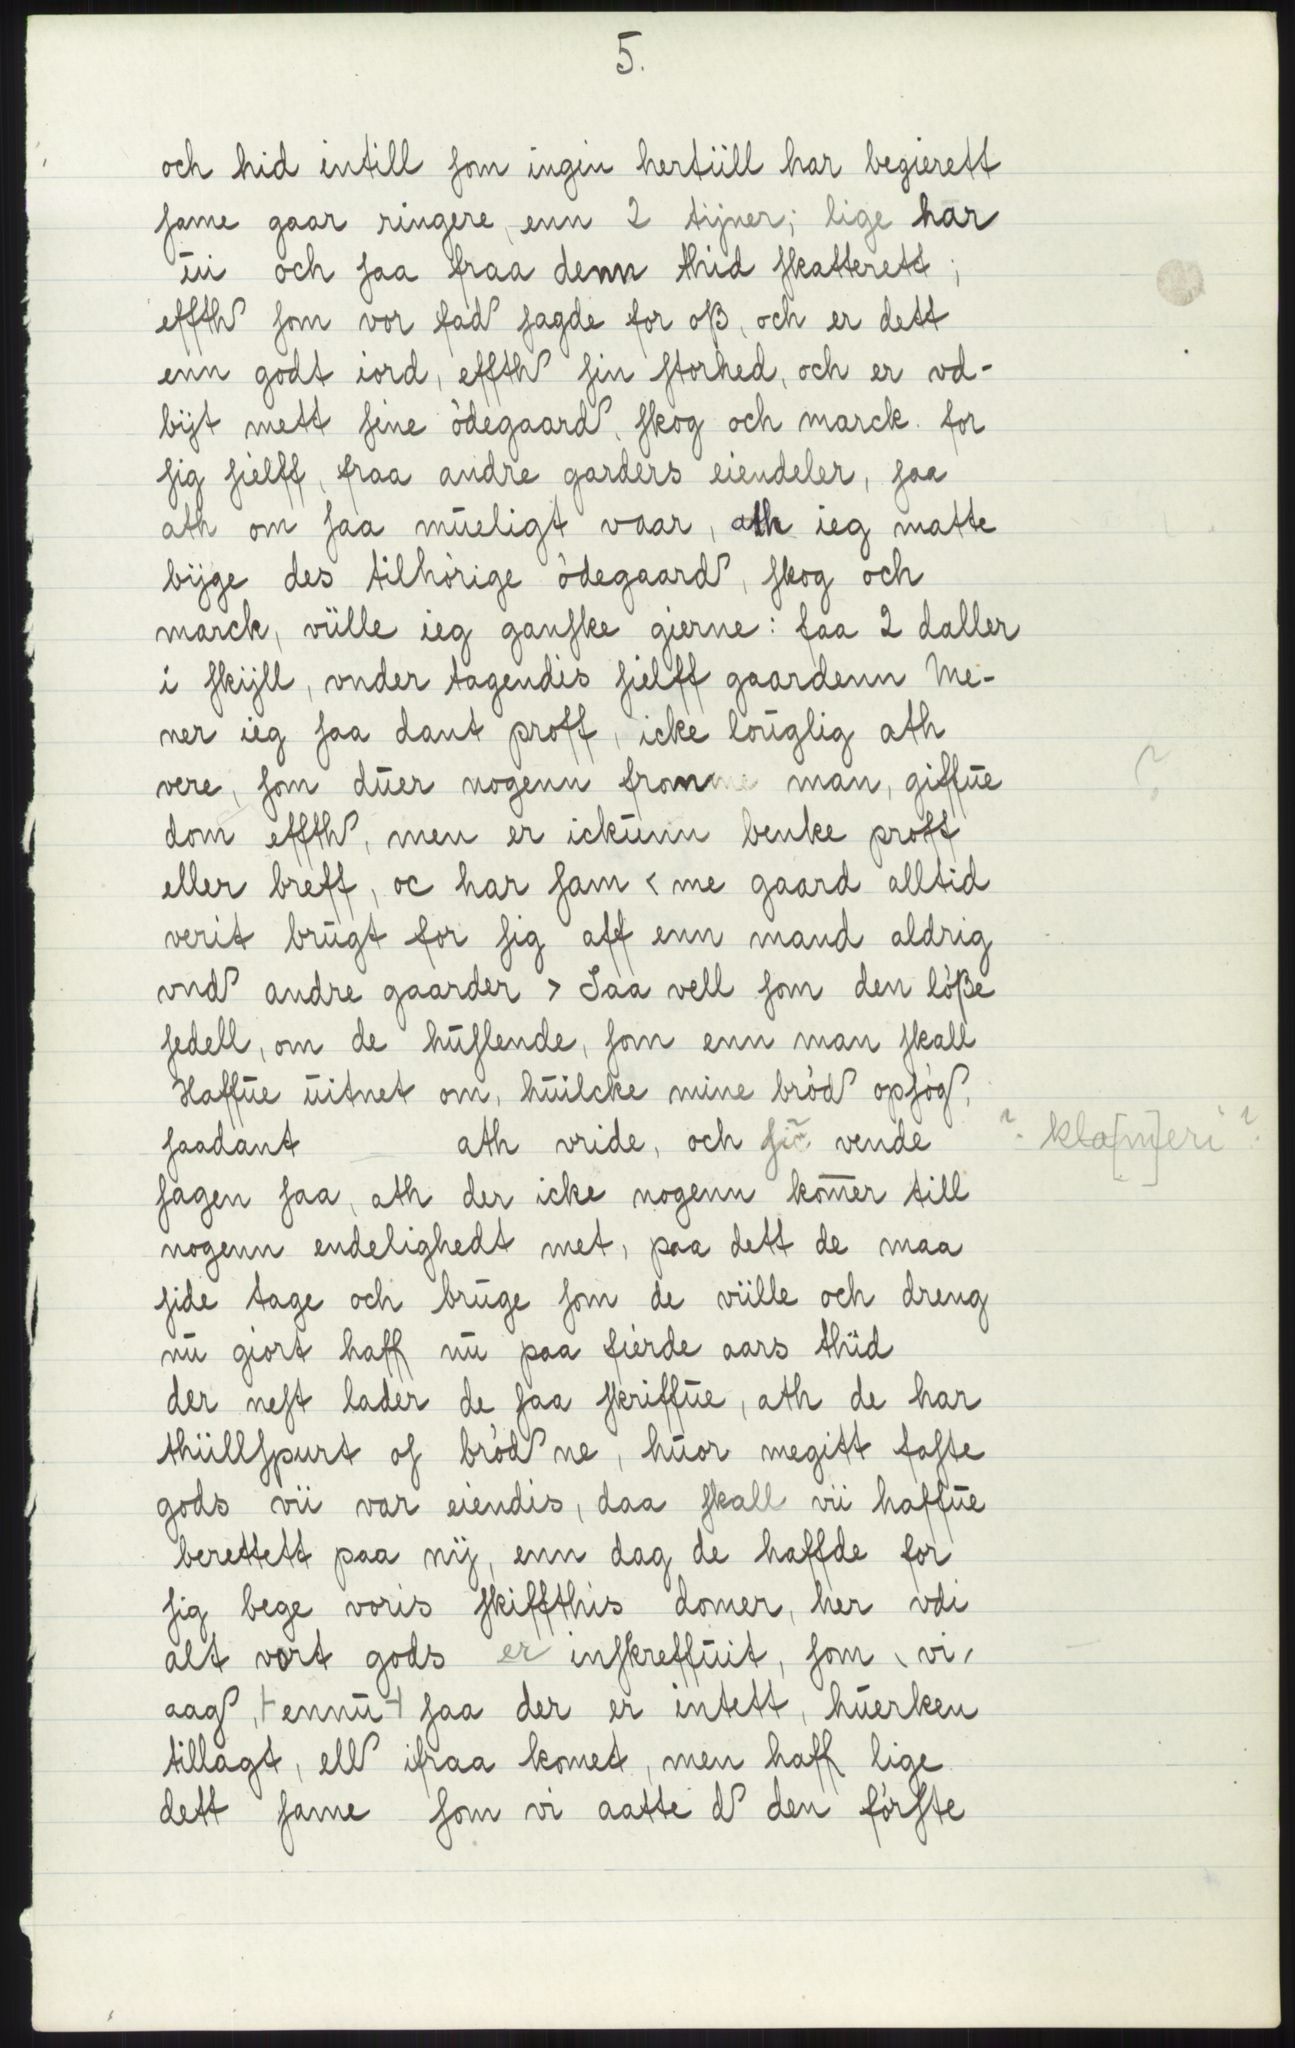 5.
och hid intill som ingin hertüll har begierett
same gaar ringere, enn 2 tijner; lige har
üi och saa fraa denn thid skatterett;
effth som vor fad sagde for oß, och er dett
enn godt iord, effth sin storhed, och er vd-
bijt mett sine ödegaard, skog och marck for
sig sielff, fraa andre garders eiendeler, saa
ath om saa mueligt vaar, ath ieg matte
bijge des tilhörige ödegaard, skog och
marck, vülle ieg ganske gierne: faa 2 daller
i skijll, vnder tagendis sielff gaardenn Me-
ner ieg saa dant proff, icke louglig ath
vere, som düer nogenn fromme man, giffue ?
dom effth, men er ickunn benke proff
eller breff, oc har sam < me gaard alltid
verit brugt for sig aff enn mand aldrig
vnd andre gaarder > Saa vell som den löße
sedell, om de huslende, som enn man skall
Haffue uitnet om, huilcke mine bröd opsög,
saadant ath vride, och vende ? kla[m]eri ?
sagen saa, ath der icke nogenn kom̄er till
nogenn endelighedt met, paa dett de maa
side tage och bruge som de vülle och dreng
nu giort haff nu paa fierde aars thüd
der nest lader de saa skriffue, ath de har
thüllspurt os bröd ne, huor megitt faste
gods vü var eiendis, daa skall vü haffue
berettett paa nij, enn dag de haffde for
sig bege voris skiffthis domer, her vdi
alt vort gods er inskreffuit, som vi
aag, ennu saa der er intett, huerken
tillagt, ell ifraa komet, men haff lige
dett same som vi aatte d den förste